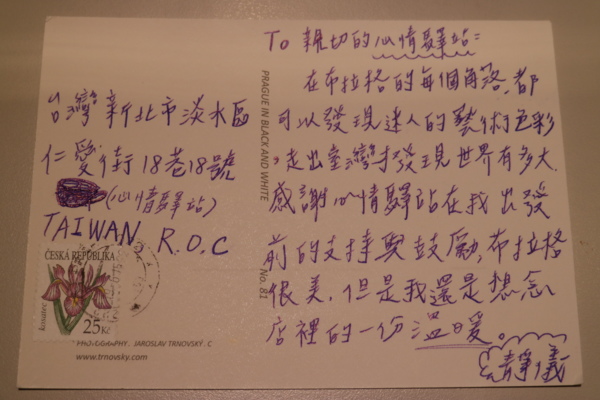 To 親切的心情驛站:
在布拉格的每個角落,都
可以發現迷人的藝術色彩
,走出臺灣才發現世界有多大.
感謝心情驛站在我出發
前的支持與鼓勵,布拉格
很美,但是我還是想念
店裡的一份溫暖。
靜儀
台灣新北市淡水區
仁愛街18巷18號
(心情驛站)
TAIWAN R.O.C
PRAGUE IN BLACK AND WHITE
No. 81
ČESKÁ REPUBLIKA
kosatec
25Kč
PHOTOGRAPHY: JAROSLAV TRNOVSKÝ, C
www.trnovsky.com